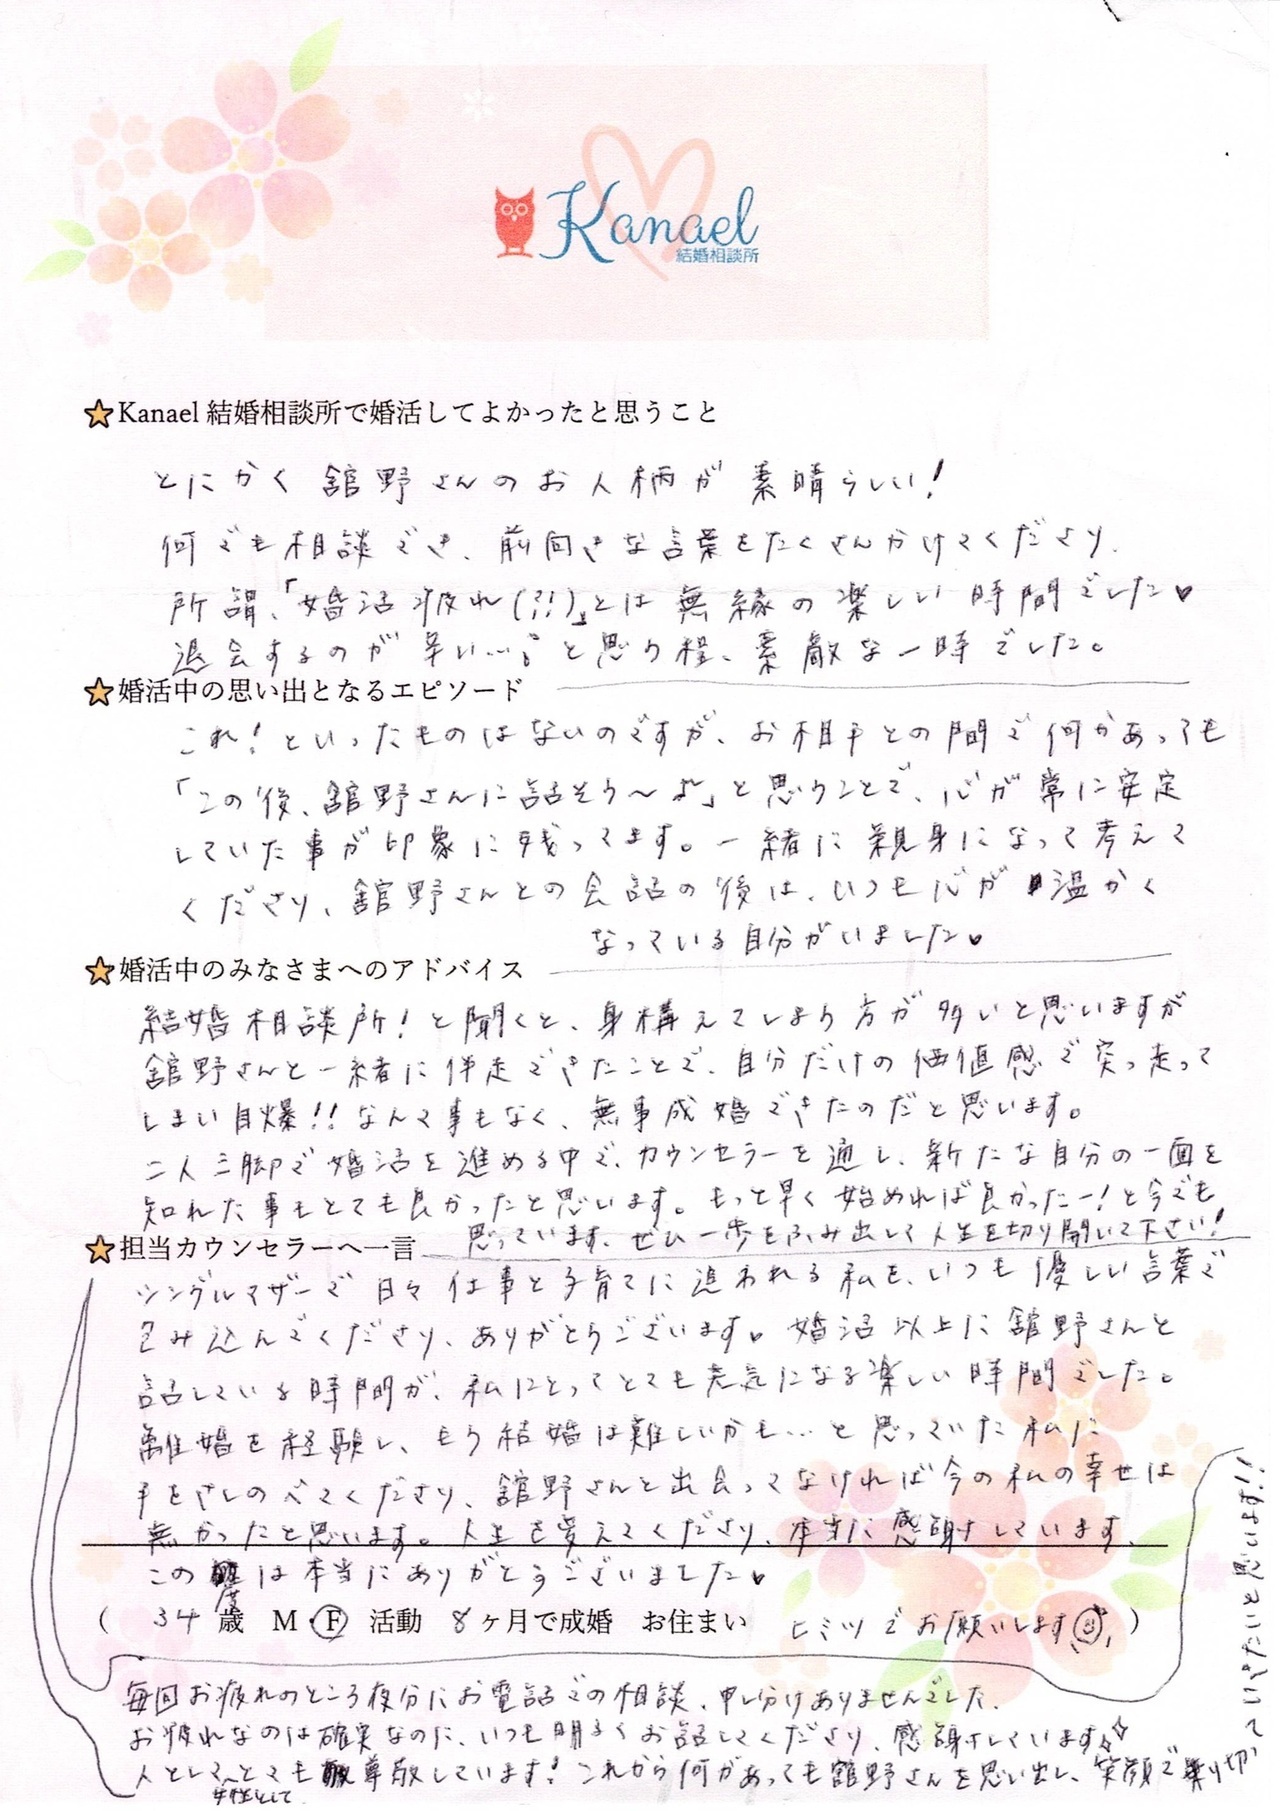 Kanael
結婚相談所
★Kanael 結婚相談所で婚活してよかったと思うこと
とにかく 舘野さんのお人柄が 素晴らしい!
何でも相談でき、前向きな言葉をたくさんかけてくださり、
所謂、「婚活疲れ(?!)」とは無縁の楽しい時間でした♥
退会するのが辛い…。と思う程、素敵な一時でした。
★婚活中の思い出となるエピソード
これ!といったものはないのですが、お相手との間で何かあっても
「この後、舘野さんに話そう〜♪」と思うことで、心が常に安定
していた事が印象に残ってます。一緒に親身になって考えて
くださり、舘野さんとの会話の後は、いつも心が温かく
なっている自分がいました♥
★婚活中のみなさまへのアドバイス
結婚相談所!と聞くと、身構えてしまう方が多いと思いますが
舘野さんと一緒に伴走できたことで、自分だけの価値感で突っ走って
しまい自爆!!なんて事もなく、無事成婚できたのだと思います。
二人三脚で婚活を進める中で、カウンセラーを通し、新たな自分の一面を
知れた事もとても良かったと思います。もっと早く始めれば良かったー!と今でも
思っています、ぜひ一歩をふみ出して人生を切り開いて下さい!
★担当カウンセラーへ一言
シングルマザーで日々仕事と子育てに追われる私を、いつも優しい言葉で
包み込んでくださり、ありがとうございます。婚活以上に舘野さんと
話している時間が、私にとってとても元気になる楽しい時間でした。
離婚を経験し、もう結婚は難しいかも…と思っていた私に
手をさしのべてくださり、舘野さんと出会ってなければ今の私の幸せは
無かったと思います。人生を変えてくださり、本当に感謝しています、
この度は本当にありがとうございました♥
( 34 歳 M・F 活動 8ヶ月で成婚 お住まい ヒミツでお願いします )
毎回お疲れのところ夜分にお電話での相談、申し分けありませんでした、
お疲れなのは確実なのに、いつも明るくお話してくださり、感謝しています☆
人として、女性としてとても尊敬しています!これから何があっても舘野さんを思い出し、笑顔で乗り切っ
ていきたいと思います!!